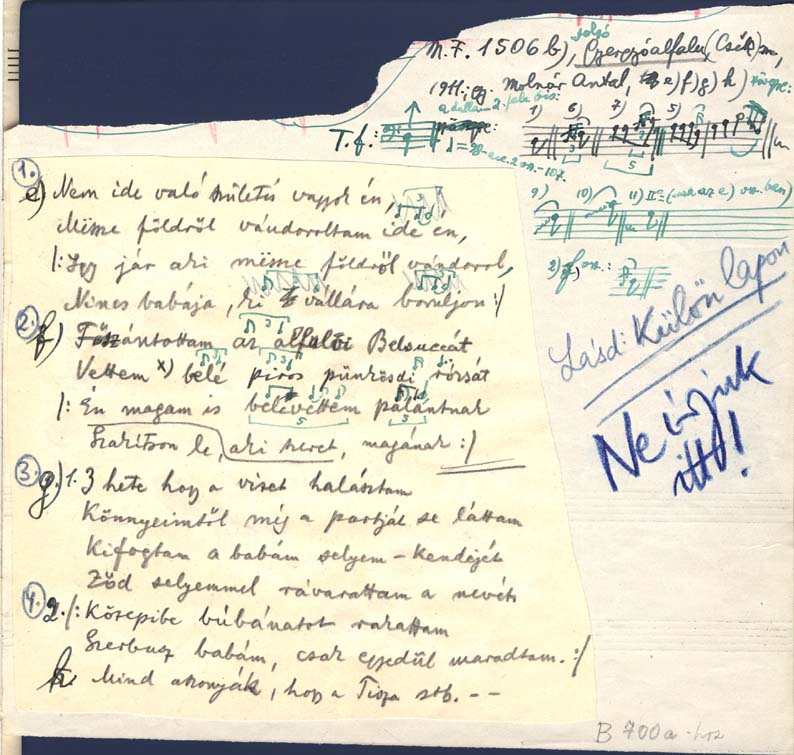 felső
M.F. 1506 b), Gyergyóalfalu, (Csík) m,
1911, gy. Molnár Antal, e) f) g) h)
a dallam 2. fele
T.f.:
1) 6) 7) 5)
3
5
9) 10) 11) II. (csak az e) vsz.ban)
2) f) vsz.:
1.
e) Nem ide való születés vagyok én,
Messze földről vándoroltam ide én,
/: Igy jár aki messze földről vándorol,
Nincs babája, ki vállára boruljon :/
2.
f) Főszántottam az alfalvi Belsuccát
Vettem x) bélé piros pünkösdi rózsát
/: Én magam is belévettem palántnak
Szakitson le, aki szeret, magának :/
3.
g) 1. 3 hete hogy a vizet halásztam
Könnyeimtől még a partját se láttam
Kifogtam a babám selyem-kendőjét
Ződ selyemmel rávarattam a nevét
4.
2. /: Közepibe búbánatot rakattam
Szerbusz babám, csak egyedül maradtam. :/
h. Mind aszonyják, hogy a Tisza stb. --
Lásd: Külön lapon
Ne irjuk
itt!
B 700a